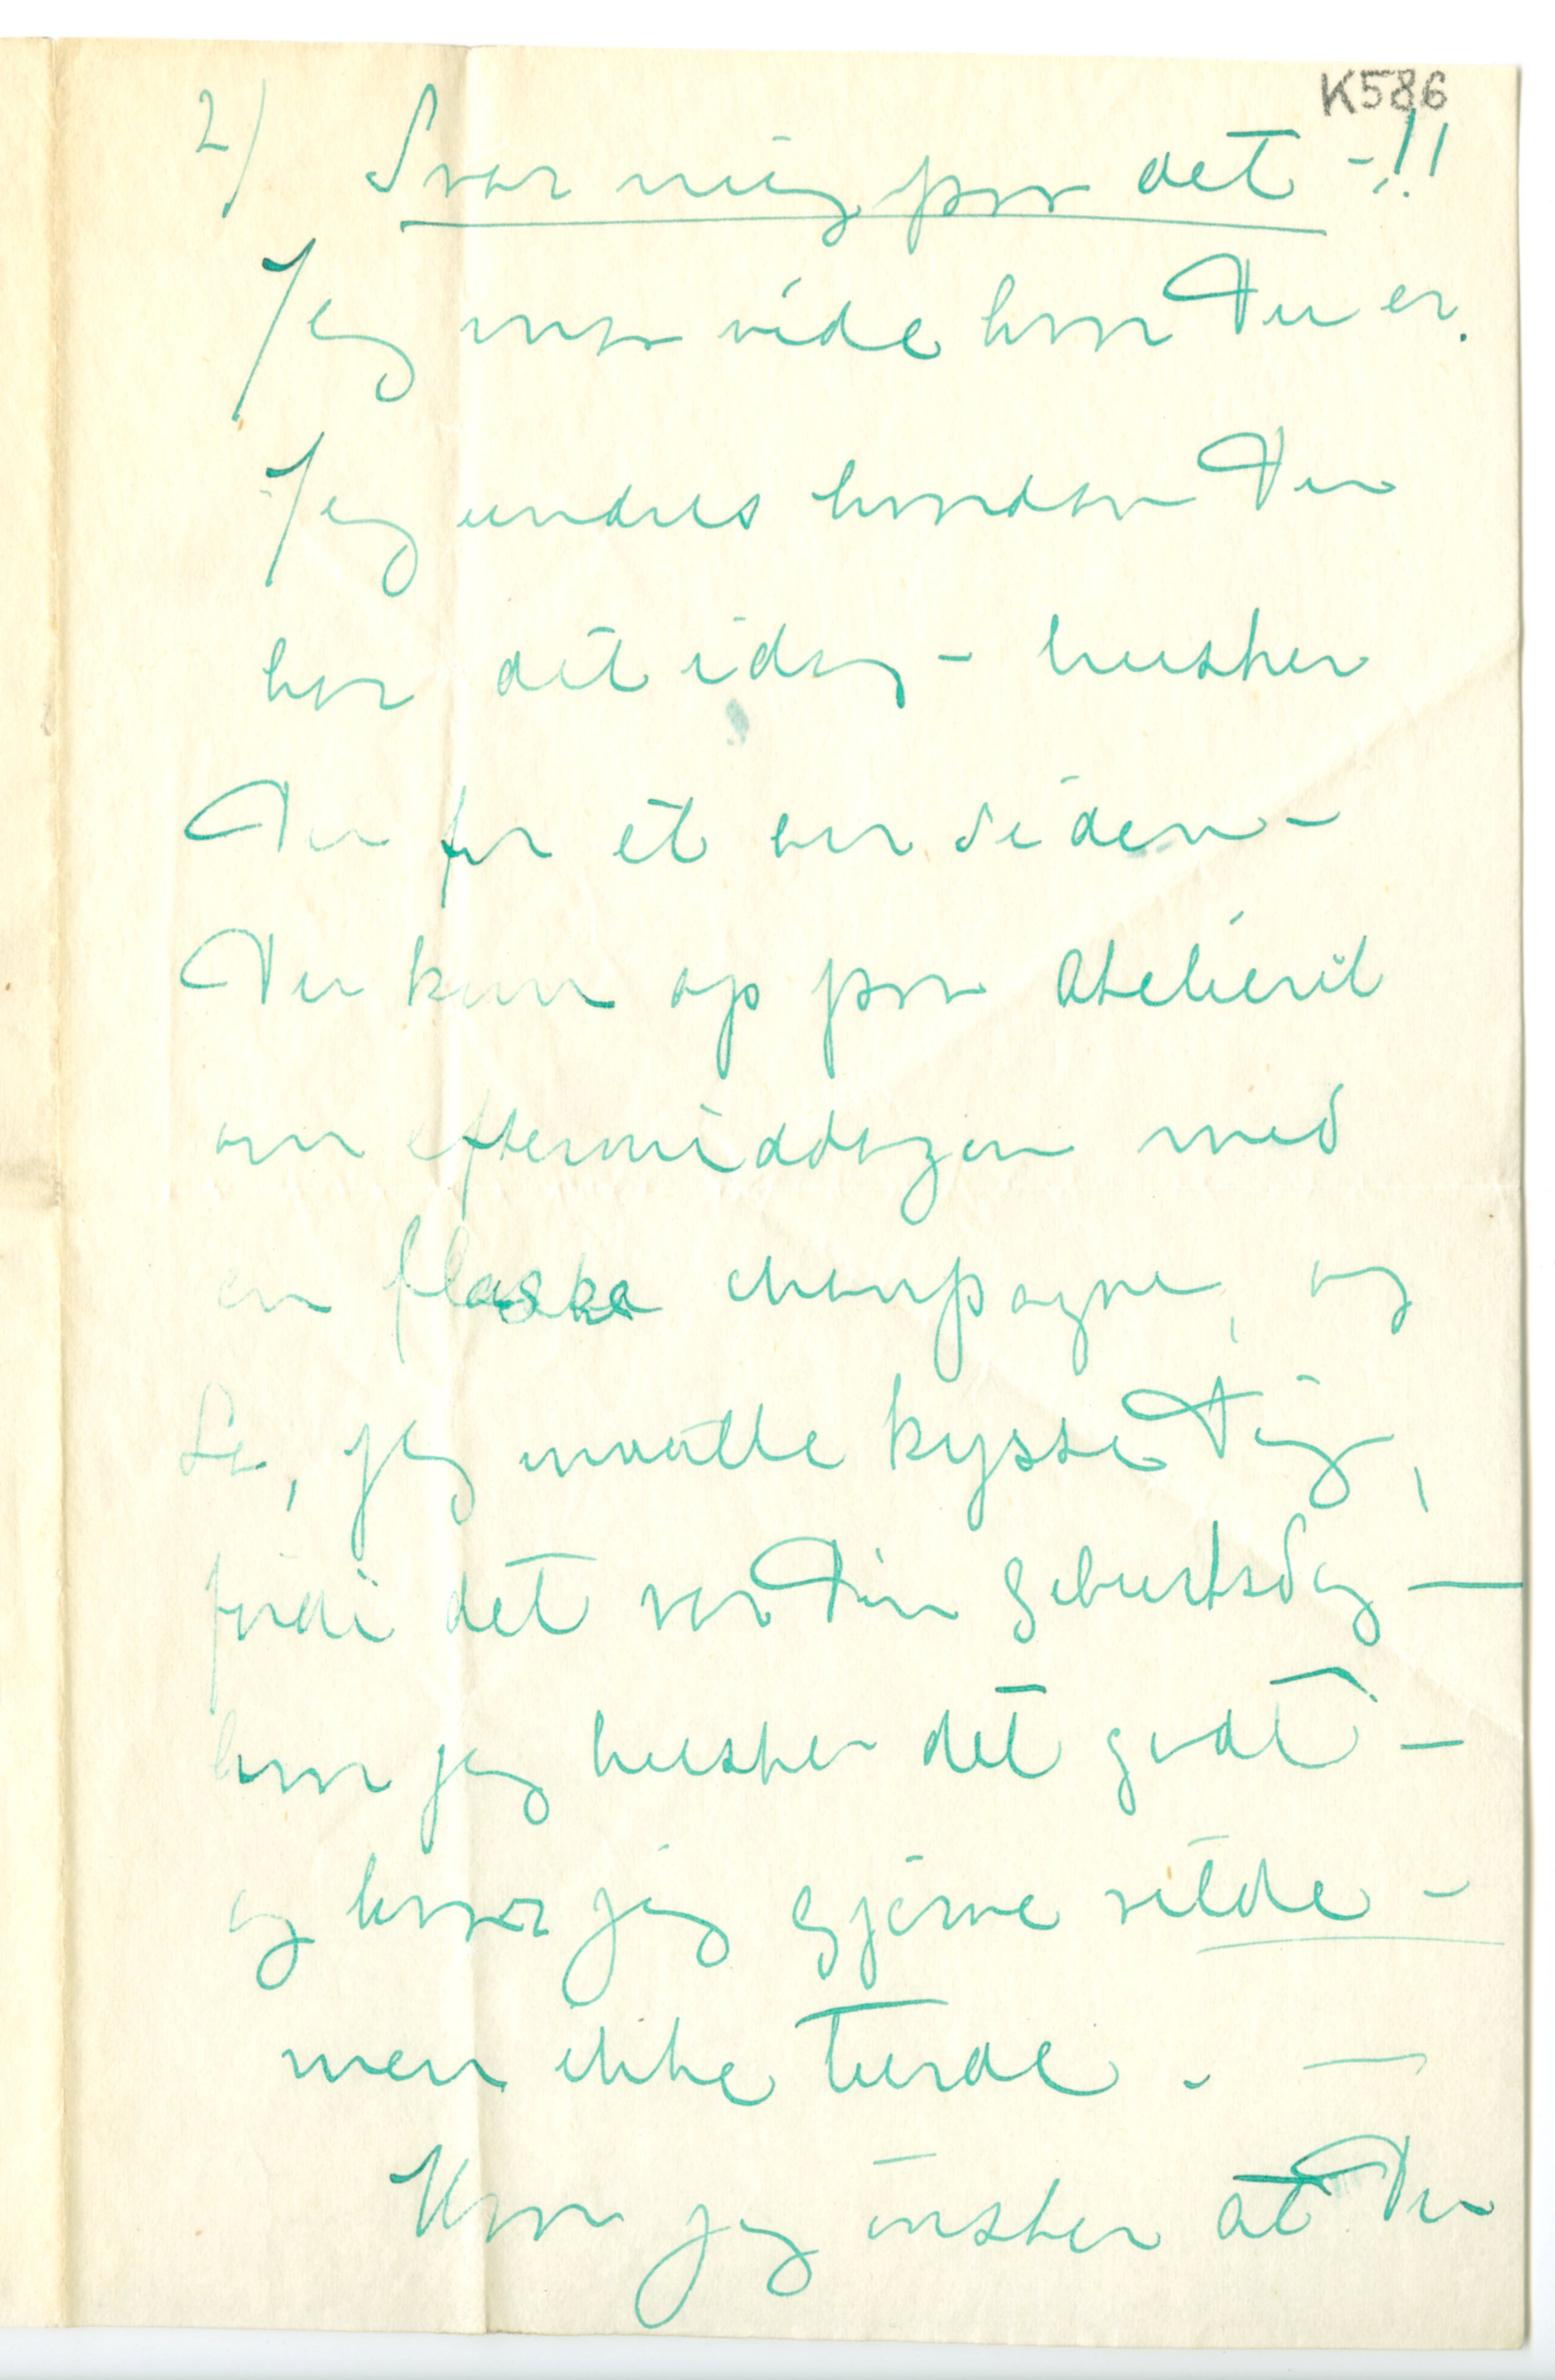 K586
2) Svar mig paa det -!!
Jeg maa vide hvor Du er.
Jeg undres hvordan Du
har det idag - husker
Du for et aar siden -
Du kom op paa atelieret
om eftermiddagen med
en flaske champagne, og
Du, jeg maatte kysse Dig,
fordi det var Din geburtsdag —
hvor jeg husker det godt -
og hvor jeg gjerne vilde -
men ikke turde. —
Hvor jeg ønsker at Du